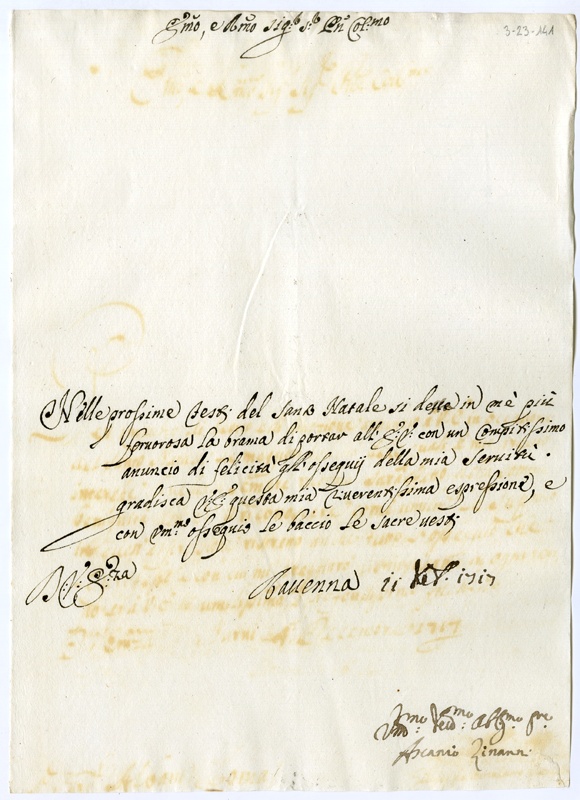 Emo, e Rmo Sig.r S.r Pne Col.mo
3-23-141
Nelle prossime Feste del Santo Natale si deste in mè più
fervorosa la brama di portar all' E: V: con un Compitissimo
anuncio di felicità gl' ossequij della mia Servitù.
gradisca V: E: questa mia riverentissima espressione, e
con um.mo ossequio le baccio le sacre vesti.
D: V: E:za
Ravenna 11 Xbr. 1717
Ascanio Zinann.